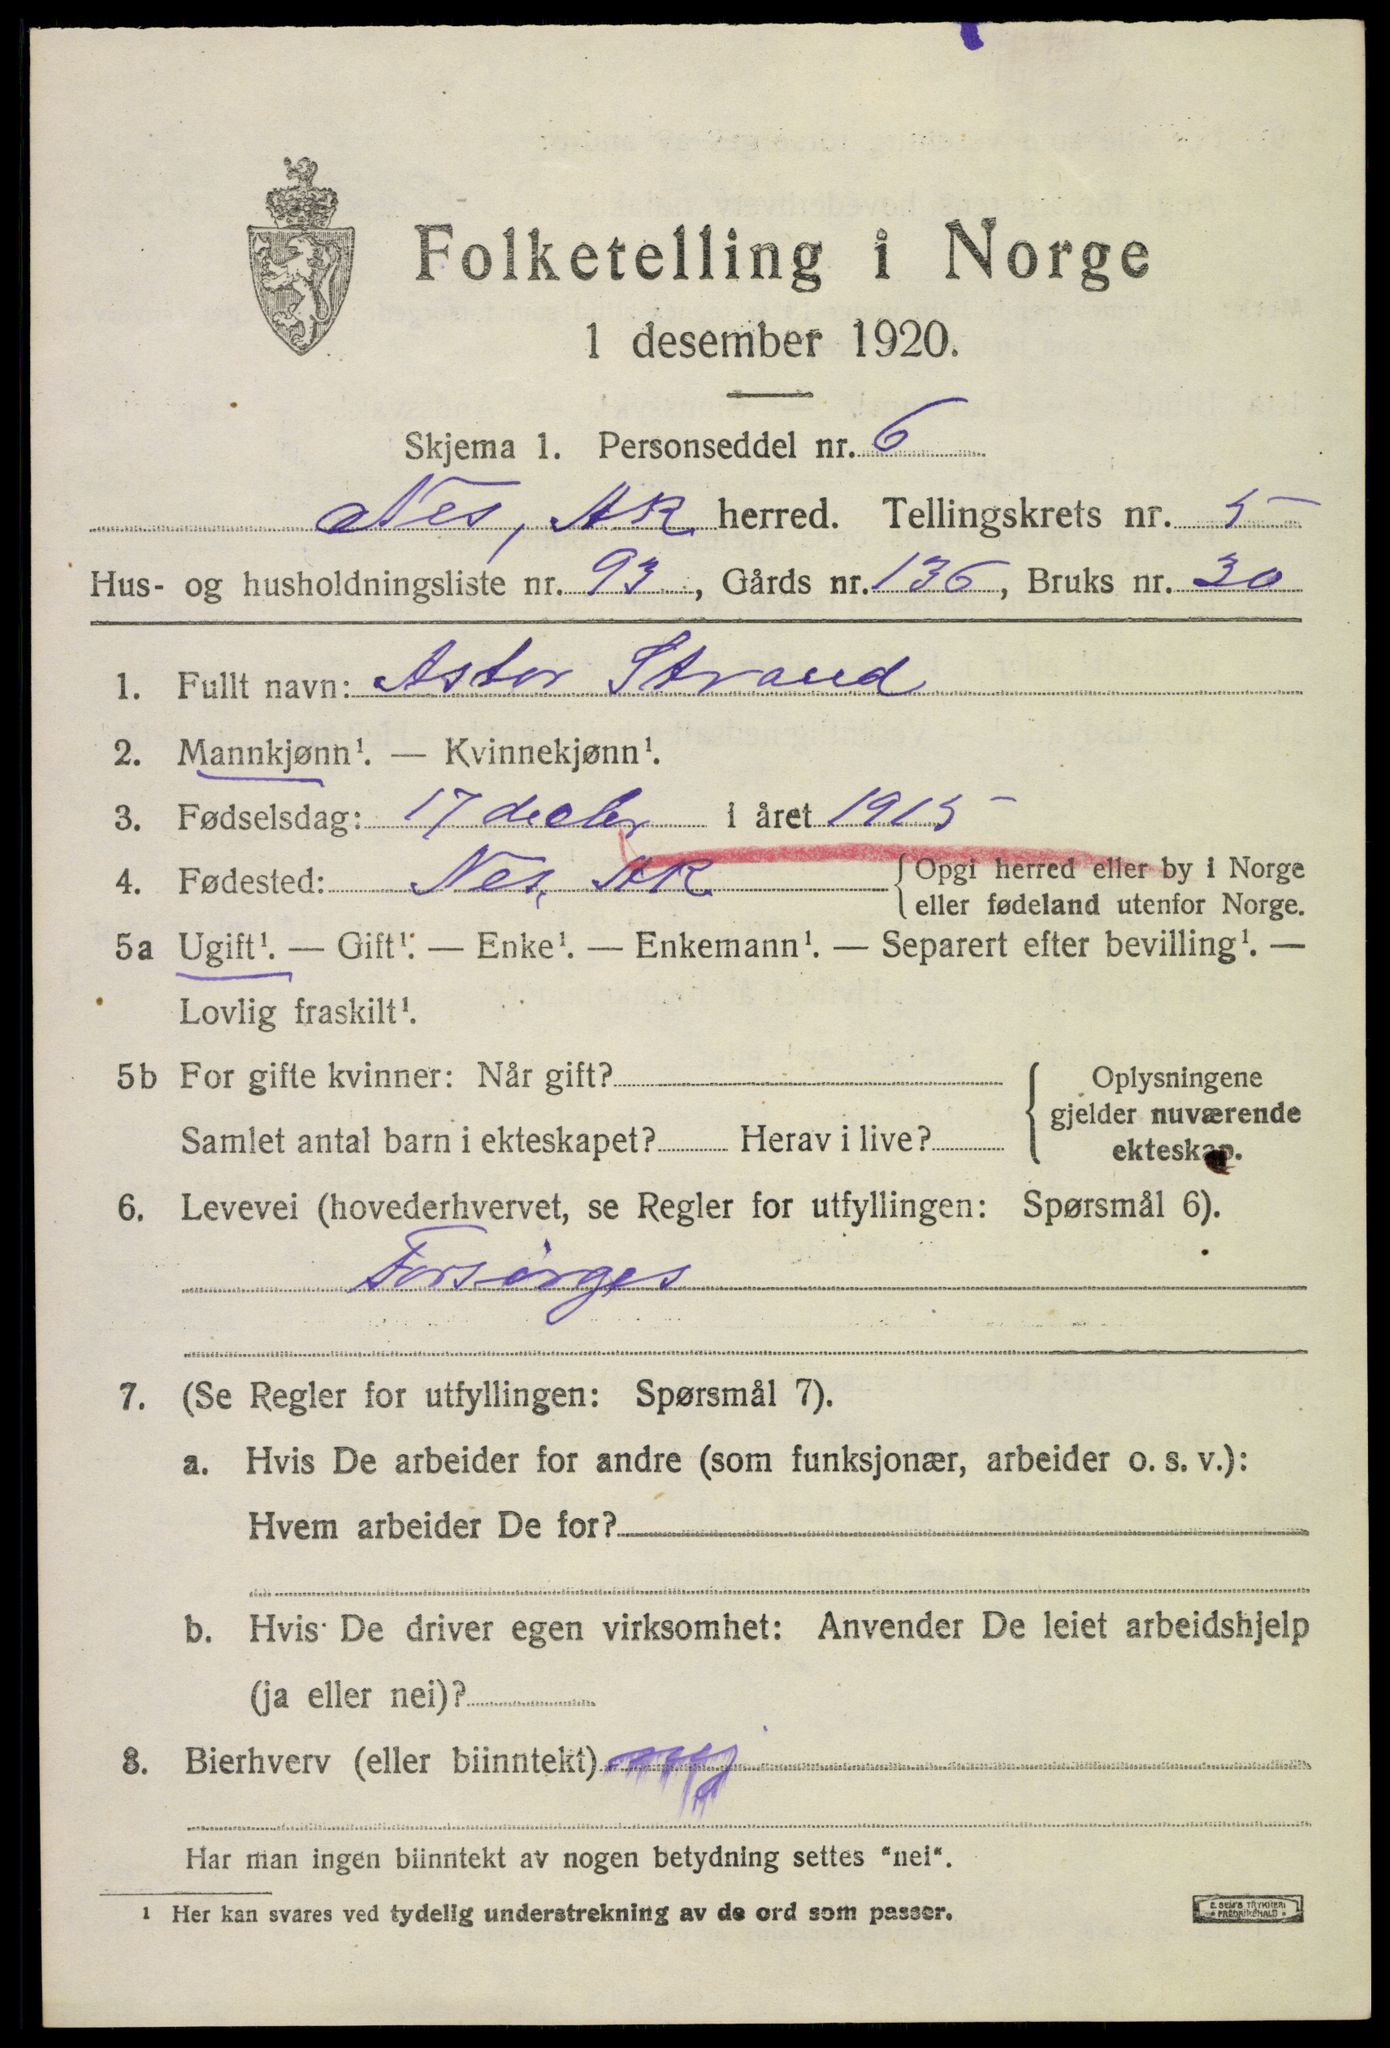 Folketelling i Norge
1 desember 1920.
Skjema 1. Personseddel nr. 6
Nes, AK herred. Tellingskrets nr. 5
Hus- og husholdningsliste nr. 93, Gårds nr. 136, Bruks nr. 30
1. Fullt navn: Astor Strand
2. Mannkjønn¹. — Kvinnekjønn¹.
3. Fødselsdag: 17 decbr i året 1915
4. Fødested: Nes, AK { Opgi herred eller by i Norge
eller fødeland utenfor Norge.
5a Ugift¹. — Gift¹. — Enke¹. — Enkemann¹. — Separert efter bevilling¹. —
Lovlig fraskilt¹.
5b For gifte kvinner: Når gift?
Samlet antal barn i ekteskapet? Herav i live?
Oplysningene
gjelder nuværende
ekteskap.
6. Levevei (hovederhvervet, se Regler for utfyllingen: Spørsmål 6).
Forsørges
7. (Se Regler for utfyllingen: Spørsmål 7).
a. Hvis De arbeider for andre (som funksjonær, arbeider o. s. v.):
Hvem arbeider De for?
b. Hvis De driver egen virksomhet: Anvender De leiet arbeidshjelp
(ja eller nei)?
8. Bierhverv (eller biinntekt)
Har man ingen biinntekt av nogen betydning settes "nei".
¹ Her kan svares ved tydelig understrekning av de ord som passer.
E. SEM'S TRYKKERI
FREDRIKSHALD